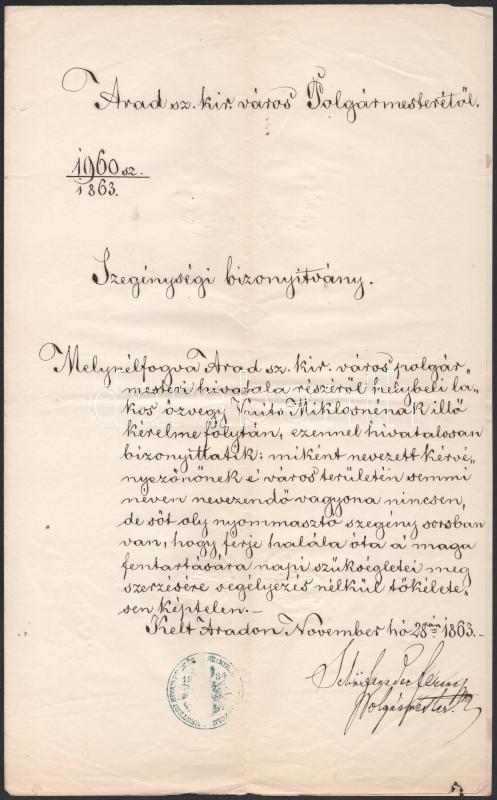 Arad sz. kir. város Polgármesterétől.
1960 sz.
1863.
Szegénységi bizonyítvány.
Melynélfogva Arad sz. kir. város polgár„
mesteri hivatala részéről helybeli la„
kos özvegy Vuits Miklosnénak illő
kérelme folytán, ezennel hivatalosan
bizonyíttatik: miként nevezett kérvé„
nyezőnőnek é város területén semmi
néven nevezendő vagyona nincsen,
de sőt oly nyommasztó szegény sorsban
van, hogy férje halála óta á maga
fentartására napi szükségletei meg
szerzésére segélyezés nélkül tökélete„
sen képtelen.–
Kelt Aradon November hó 28án 1863.–
Polgármester